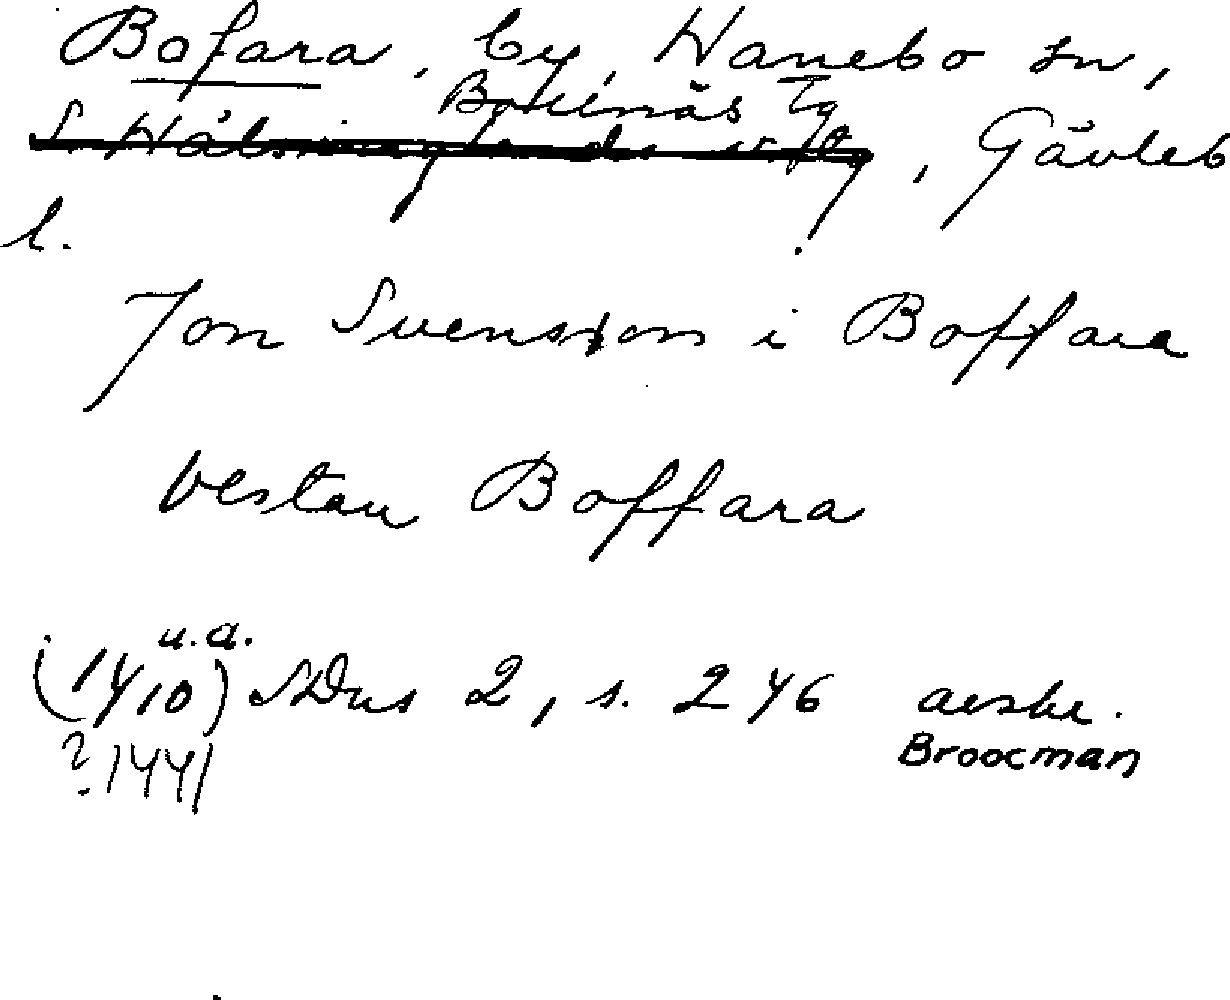 Bofara, by, Hanebo sn,
Bollnäs tg
S. Hälsinglands , Gävleb
l.
Jon Svensson i Boffara
vestan Boffara
u.a.
(1410) SDns 2, s. 246 avskr.
Broocman
? 1441